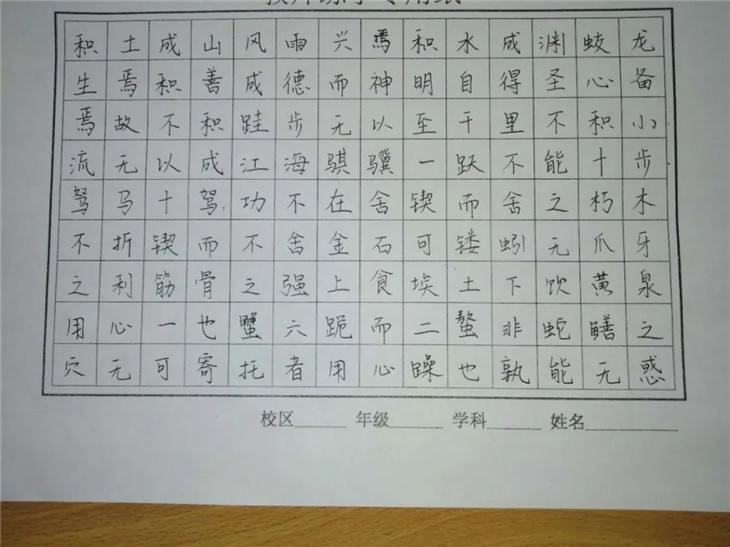 积土成山风雨兴焉积水成渊蛟龙
生焉积善成德而神明自得圣心备
焉故不积跬步无以至千里不积小
流无以成江海骐骥一跃不能十步
驽马十驾功不在舍锲而舍之朽木
不折锲而不舍金石可镂蚓无爪牙
之利筋骨之强上食埃土下饮黄泉
用心一也蟹六跪而二螯非蛇鳝之
穴无可寄托者用心躁也孰能无惑
校区______ 年级______ 学科______ 姓名__________